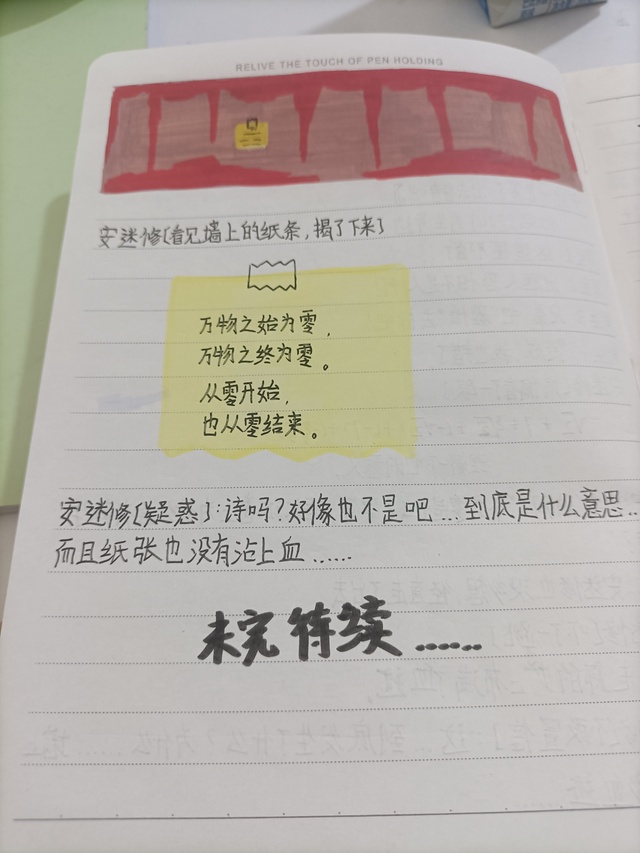 RELIVE THE TOUCH OF PEN HOLDING
安迷修[看见墙上的纸条,揭了下来]
万物之始为零,
万物之终为零。
从零开始,
也从零结来。
安迷修[疑惑]:诗吗?好像也不是吧...到底是什么意思..
而且纸张也没有沾上血......
未完待续......